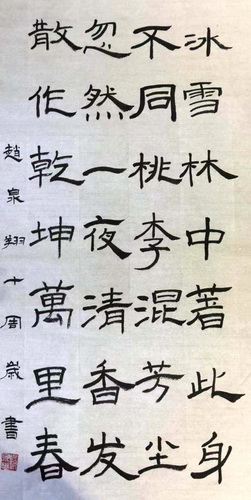 冰雪林中著此身
不同桃李混芳尘
忽然一夜清香发
散作乾坤萬里春
趙泉翔十周歲書